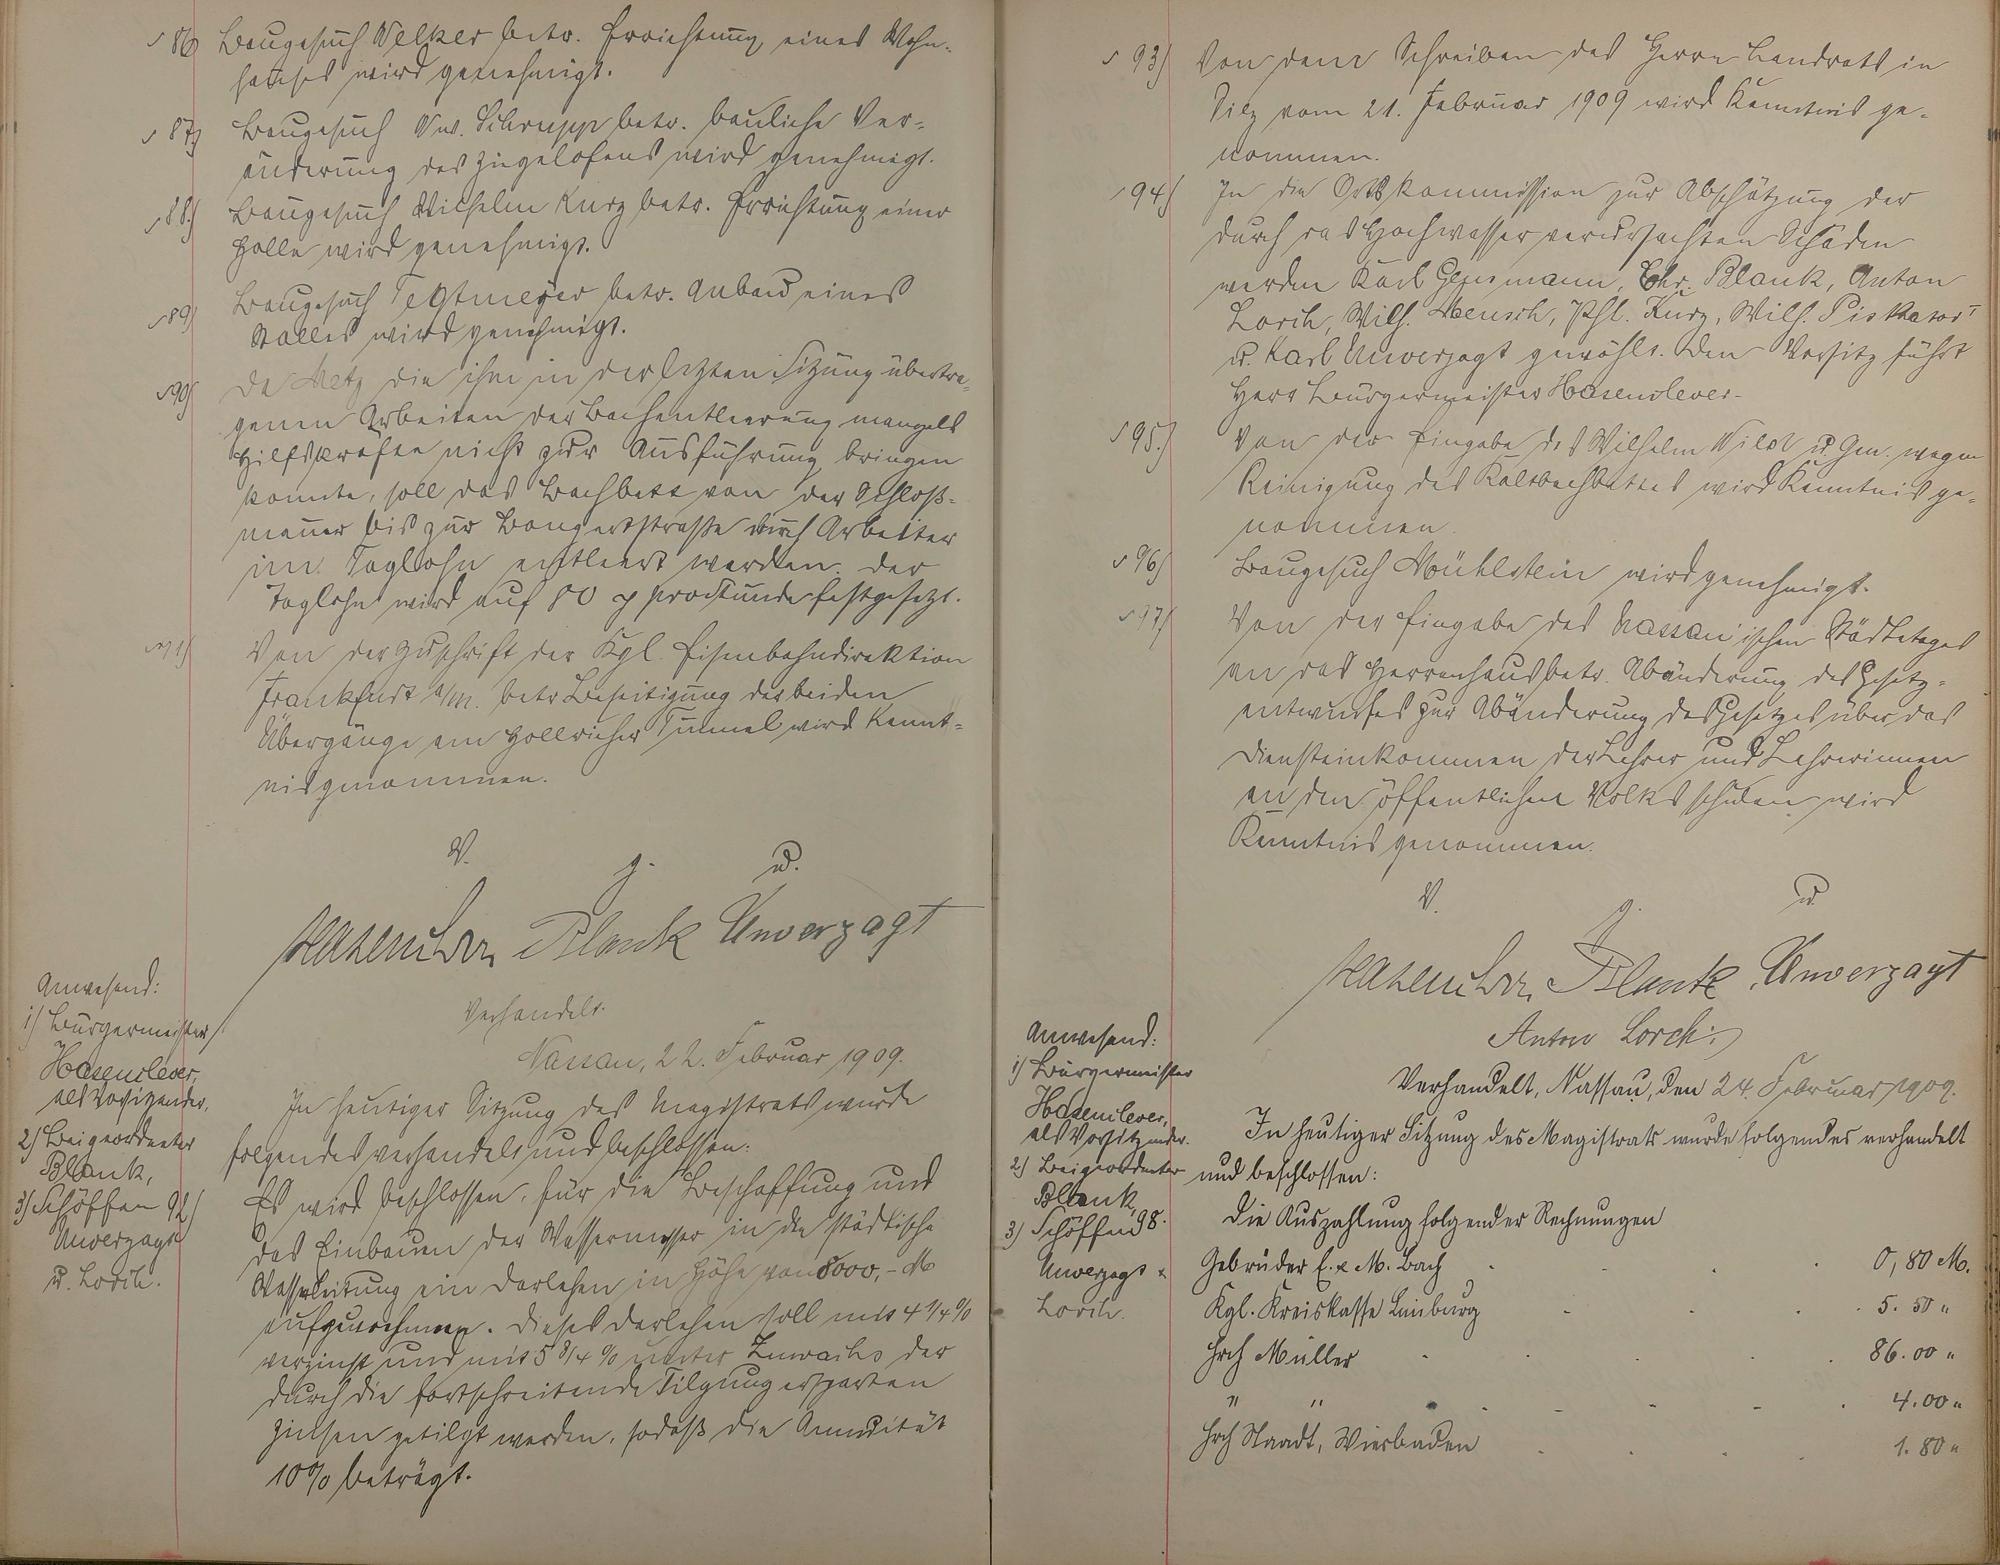 86 Baugesuch Welker betr. Errichtung eines Wohn-
hauses wird genehmigt.
87) Baugesuch Ww. Schrupp betr. bauliche Ver-
änderung des Ziegelofens wird genehmigt.
88) Baugesuch Wilhelm Kurz betr. Errichtung einer
Halle wird genehmigt.
89) Baugesuch Tegtmeyer betr. Anbau eines
Stalles wird genehmigt.
90) Da Metz die ihm in der letzten Sitzung übertra-
genen Arbeiten der Bachentleerung mangels
Hilfskräften nicht zur Ausführung bringen
konnte, soll das Bachbett von der Schloß-
mauer bis zur Bongertstraße durch Arbeiter
im Taglohn entleert werden. Der
Taglohn wird auf 50 ₰ pro Stunde festgesetzt.
91) Von der Zuschrift der Kgl. Eisenbahndirektion
Frankfurt a/M. betr. Beseitigung der beiden
Übergänge am Hollricher Tunnel wird Kennt-
nis genommen.
V. g. u.
Hasenclever Blank Unverzagt
Verhandelt.
Nassau, 22. Februar 1909.
Anwesend:
1) Bürgermeister
Hasenclever,
als Vorsitzender,
2) Beigeordneter
Blank,
3) Schöffen
Unverzagt
u. Lorch.
In heutiger Sitzung des Magistrats wurde
folgendes verhandelt und beschlossen:
92) Es wird beschlossen, für die Beschaffung und
das Einbauen der Wassermesser in die städtische
Wasserleitung ein Darlehen in Höhe von 8000,- M
aufzunehmen. Dieses Darlehen soll mit 4 1/4 %
verzinst und mit 5 3/4 % unter Zuwachs der
durch die fortschreitende Tilgung ersparten
Zinsen getilgt werden, sodaß die Annuität
10% beträgt.
93) Von dem Schreiben des Herrn Landrats in
Diez vom 21. Februar 1909 wird Kenntnis ge-
nommen.
94) In die Ortskommission zur Abschätzung der
durch das Hochwasser verursachten Schäden
werden Karl Chr. Blank, Anton
Lorch, Wilh. Mensch, Phl. Kurz, Wilh. Piskator
u. Karl Unverzagt gewählt. Den Vorsitz führt
Herr Bürgermeister Hasenclever.
95.) Von der Eingabe des Wilhelm Wild u. Gen. wegen
Reinigung des Kaltbachbettes wird Kenntnis ge-
nommen.
96) Baugesuch Mühlstein wird genehmigt.
97) Von der Eingabe des Nassau'ischen Städtetages
an das Herrenhaus betr. Abänderung des Gesetz-
entwurfes zur Abänderung des Gesetzes über das
Diensteinkommen der Lehrer und Lehrerinnen
an den öffentlichen Volksschulen wird
Kenntnis genommen.
V. g. u.
Hasenclever, Blank, Unverzagt
Anton Lorch.
Verhandelt, Nassau, den 24. Februar 1909.
Anwesend:
1) Bürgermeister
Hasenclever,
als Vorsitzender.
2) Beigeordneter
Blank,
3) Schöffen
Unverzagt &
Lorch.
In heutiger Sitzung des Magistrats wurde folgendes verhandelt
und beschlossen:
98. Die Auszahlung folgender Rechnungen
Gebrüder E. & M. Bach 0,80 M.
Kgl. Kreiskasse Limburg 5.50 "
Hrch Müller 86.00 "
" " 4.00 "
Hrch Staadt, Wiesbaden 1.80 "